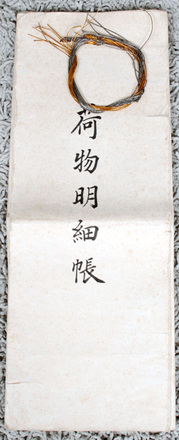 荷物明細帳